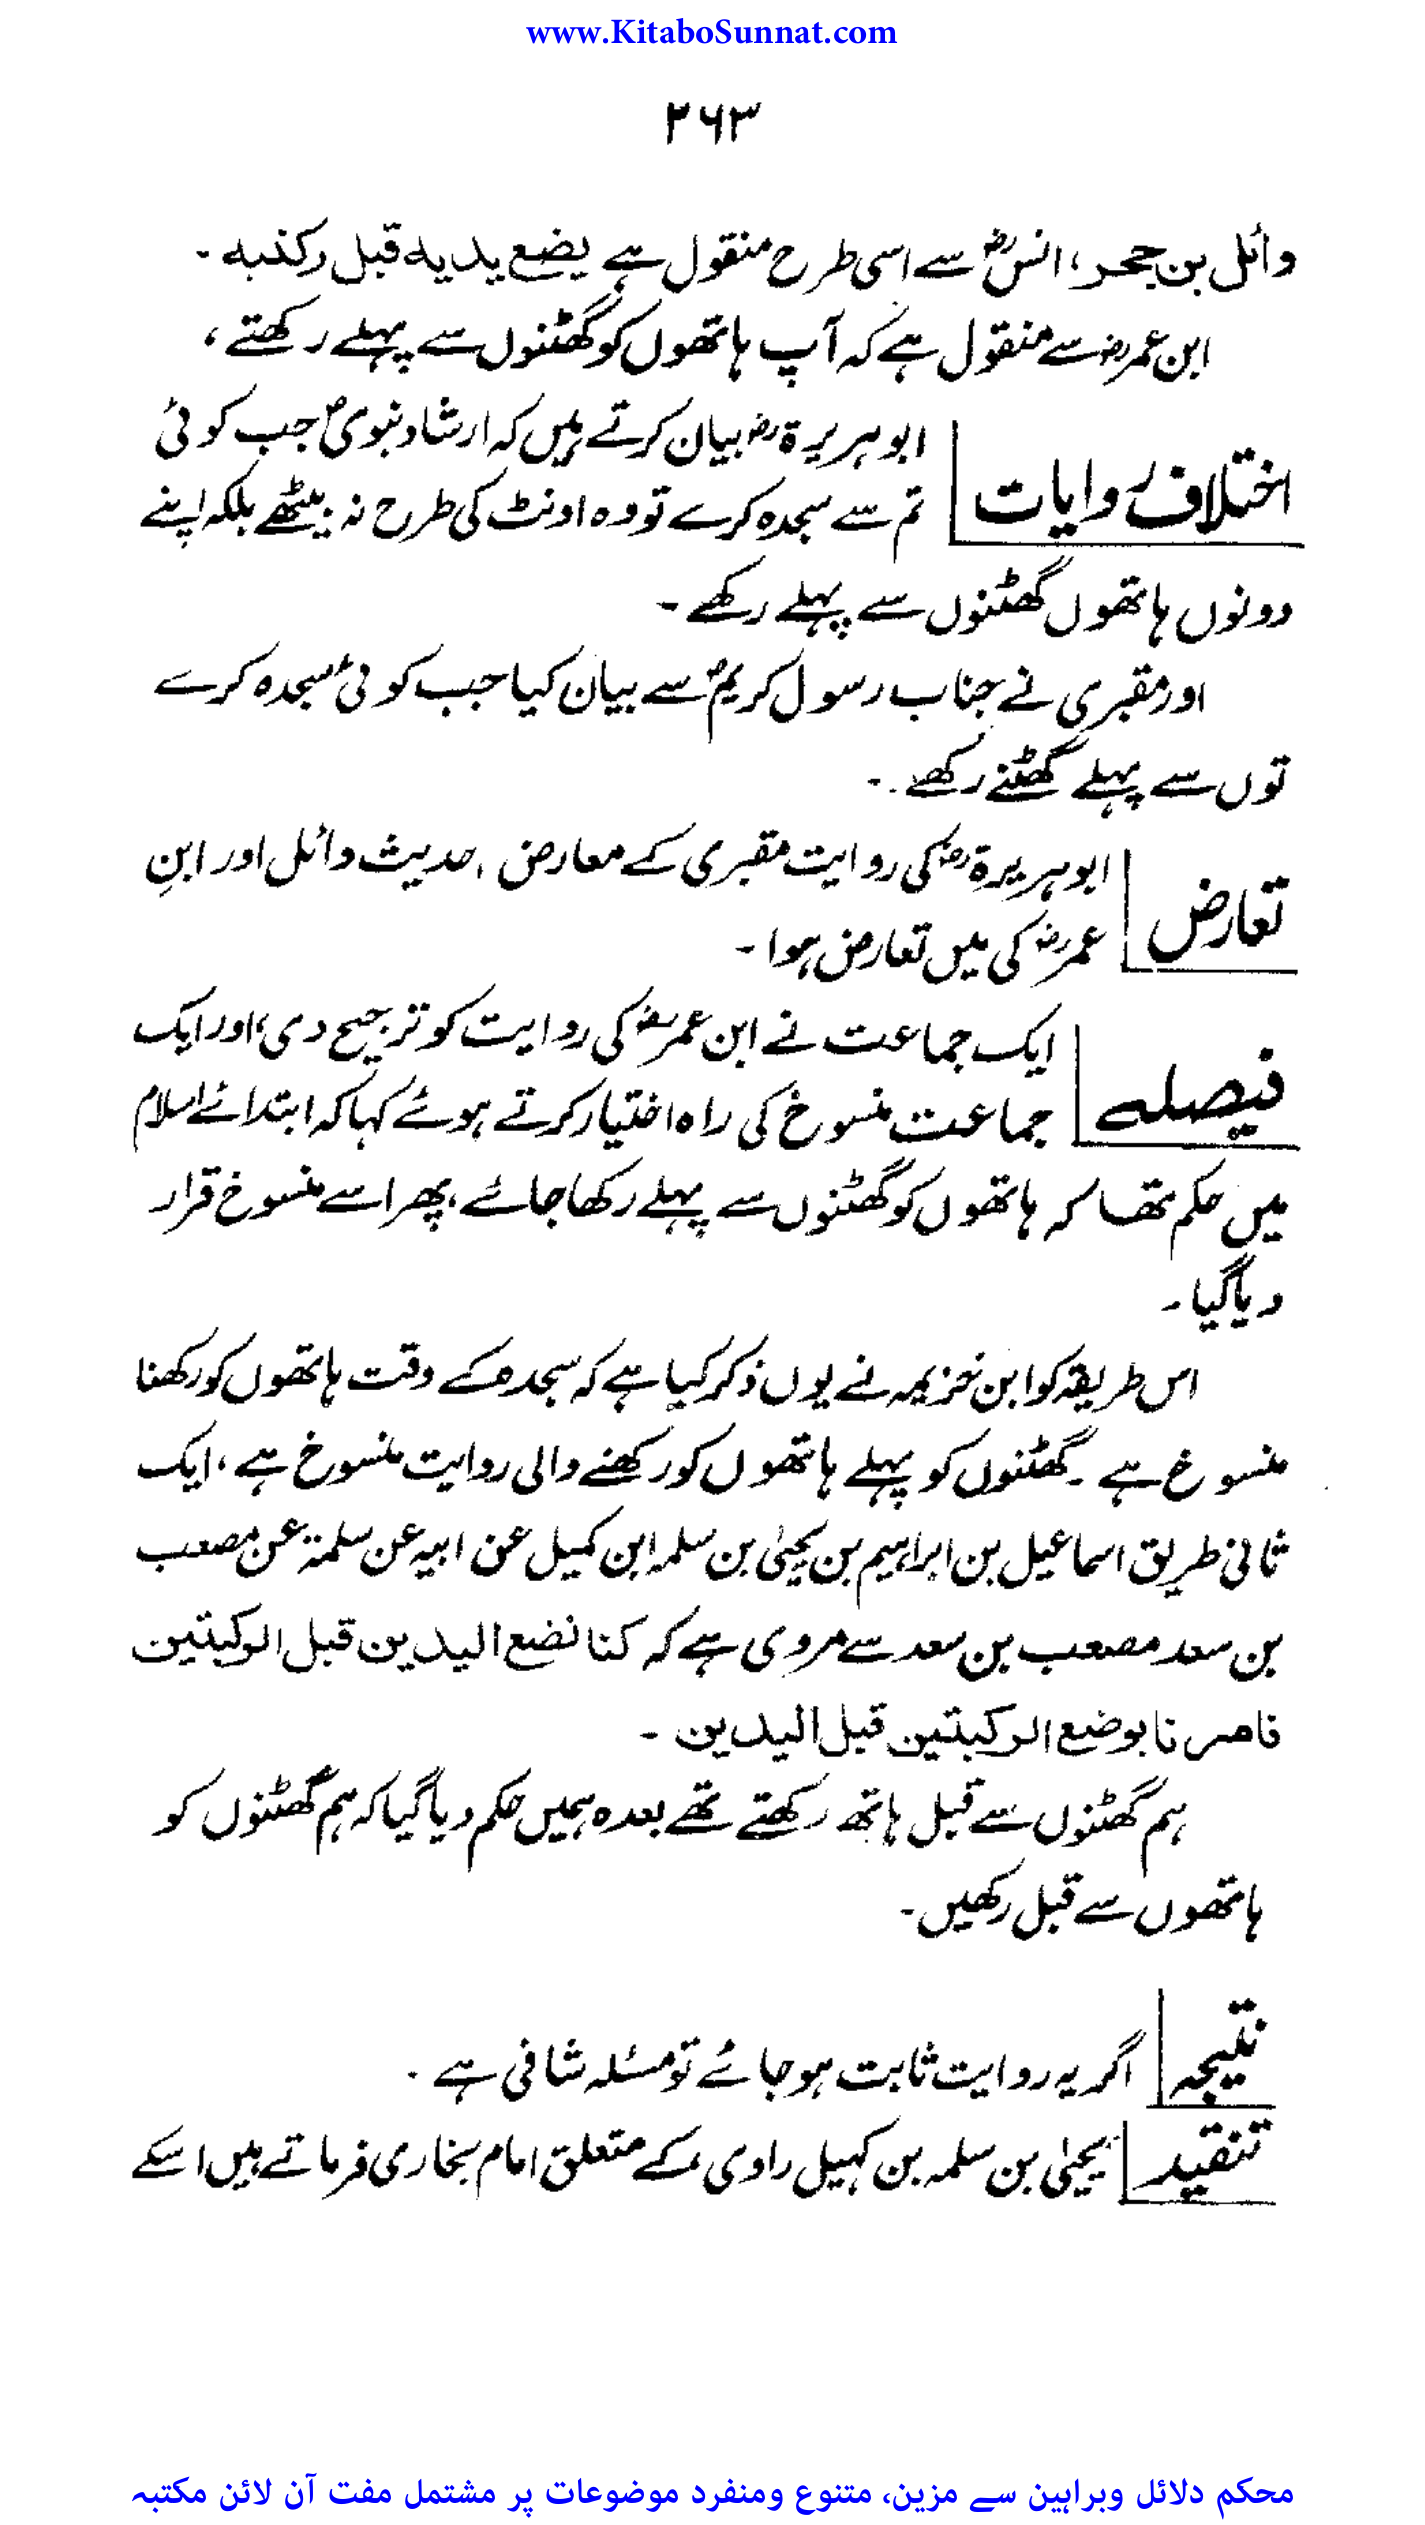 www.KitaboSunnat.com
۲۶۳
وائل بن حجر، انسؓ سے اسی طرح منقول ہے یضع یدیہ قبل رکبتہ ۔
ابن عمرؓ سے منقول ہے کہ آپ ہاتھوں کو گھٹنوں سے پہلے رکھتے ،
اختلاف روایات
ابوہریرۃؓ بیان کرتے ہیں کہ ارشاد نبویؐ جب کوئی
تم سے سجدہ کرے تو وہ اونٹ کی طرح نہ بیٹھے بلکہ اپنے
دونوں ہاتھوں گھٹنوں سے پہلے رکھے ۔
اور مقبری نے جناب رسول کریمؐ سے بیان کیا جب کوئی سجدہ کرے
توں سے پہلے گھٹنے رکھے ۔
تعارض
ابوہریرۃؓ کی روایت مقبری کے معارض ، حدیث وائل اور ابنِ
عمرؓ کی میں تعارض ہوا ۔
فیصلے
ایک جماعت نے ابن عمرؓ کی روایت کو ترجیح دی، اور ایک
جماعت منسوخ کی راہ اختیار کرتے ہوئے کہا کہ ابتدائے اسلام
میں حکم تھا کہ ہاتھوں کو گھٹنوں سے پہلے رکھا جائے، پھر اسے منسوخ قرار
دیا گیا ۔
اس طریقہ کو ابن خزیمہ نے یوں ذکر کیا ہے کہ سجدہ کے وقت ہاتھوں کو رکھنا
منسوخ ہے ۔ گھٹنوں کو پہلے ہاتھوں کو رکھنے والی روایت منسوخ ہے ، ایک
ثانی طریق اسماعیل بن ابراہیم بن یحییٰ بن سلمہ ابن کمیل عن ابیہ عن سلمۃ عن مصعب
بن سعد مصعب بن سعد سے مروی ہے کہ کنا نضع الیدین قبل الرکبتین
فامرنا بوضع الرکبتین قبل الیدین ۔
ہم گھٹنوں سے قبل ہاتھ رکھتے تھے بعدہ ہمیں حکم دیا گیا کہ ہم گھٹنوں کو
ہاتھوں سے قبل رکھیں ۔
نتیجہ
اگر یہ روایت ثابت ہو جائے تو مسئلہ شافی ہے ۔
تنقید
یحییٰ بن سلمہ بن کہیل راوی کے متعلق امام بخاری فرماتے ہیں اسکے
محکم دلائل وبراہین سے مزین، متنوع ومنفرد موضوعات پر مشتمل مفت آن لائن مکتبہ